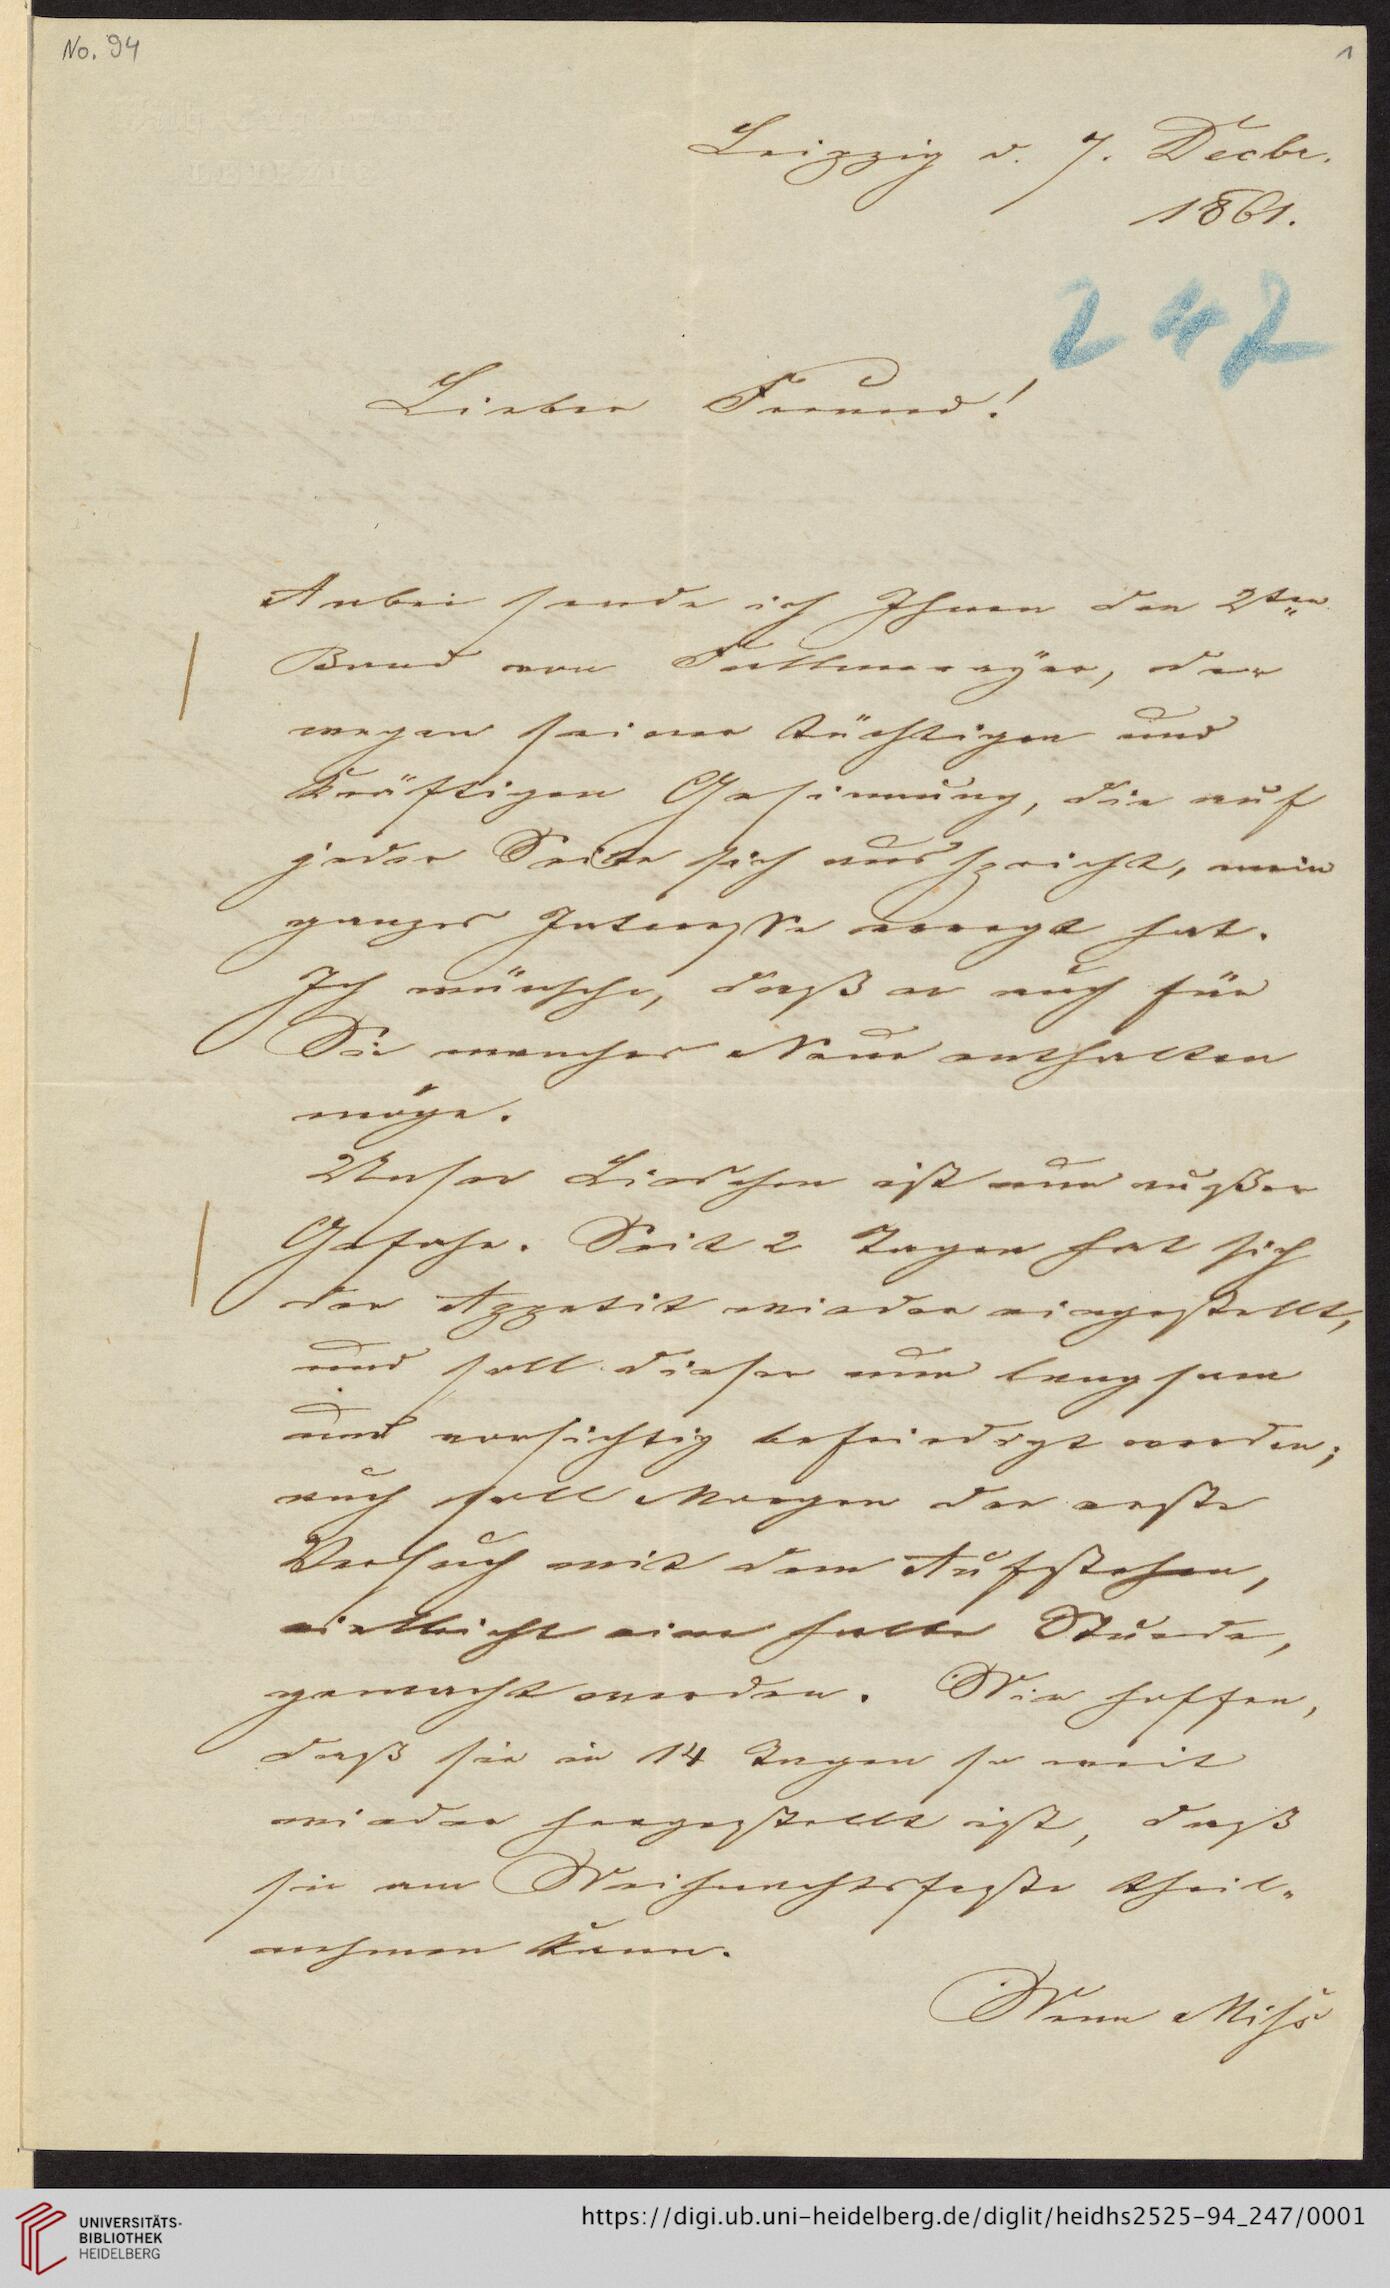 No. 94
1
Leipzig d. 7. Decbr.
1861.
247
Lieber Freund!
Anbei sende ich Ihnen den 2ten
Band von Fallmerayer, der
wegen seiner tüchtigen und
kräftigen Gesinnung, die auf
jeder Seite sich ausspricht, mein
ganzes Interesse erregt hat.
Ich wünsche, daß er auch für
Sie manches Neue enthalten
möge.
Unser Lieschen ist nun außer
Gefahr. Seit 2 Tagen hat sich
der Appetit wieder eingestellt,
und soll dieser nun langsam
und vorsichtig befriedigt werden;
auch soll Morgen der erste
Versuch mit dem Aufstehen,
vielleicht eine halbe Stunde,
gemacht werden. Wir hoffen,
daß sie in 14 Tagen so weit
wieder hergestellt ist, daß
sie am Weihnachtsfeste theil-
nehmen kann.
Wenn Miss
UNIVERSITÄTS-
BIBLIOTHEK
HEIDELBERG
https://digi.ub.uni-heidelberg.de/diglit/heidhs2525-94_247/0001